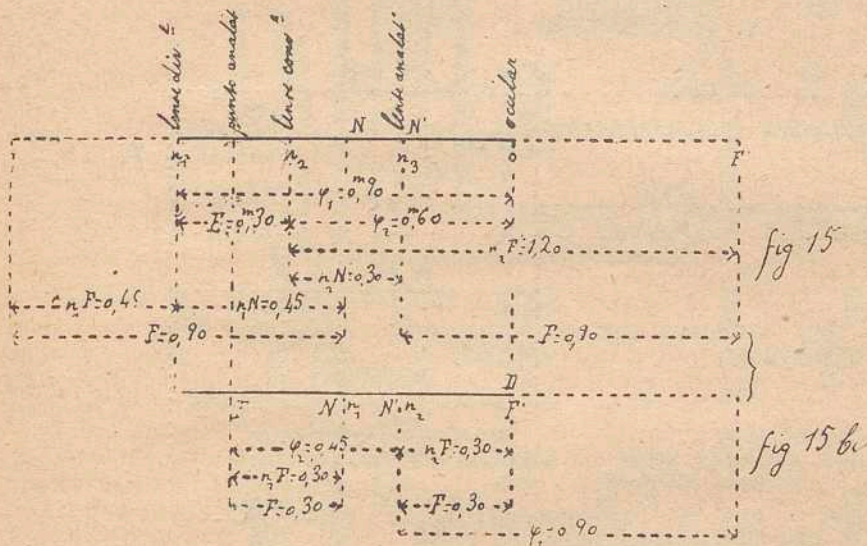 lente div.ᵉ
punto analat
lente conv.ᵉ
lente analatˢ
ocular
N N'
n₁ n₂ n₃ o F
φ₁=0,ᵐ90
E=0,ᵐ30 φ₂=0,ᵐ60
n₂F'=1,20
fig 15
n₂N=0,30
n₁F=0,45 n₁N=0,45
F=0,90 F=0,90
D
F N n₁ N' n₂ F'
φ₂=0,45 n₂F=0,30
fig 15 b
n₁F=0,30
F=0,30 F=0,30
φ₁=0,90